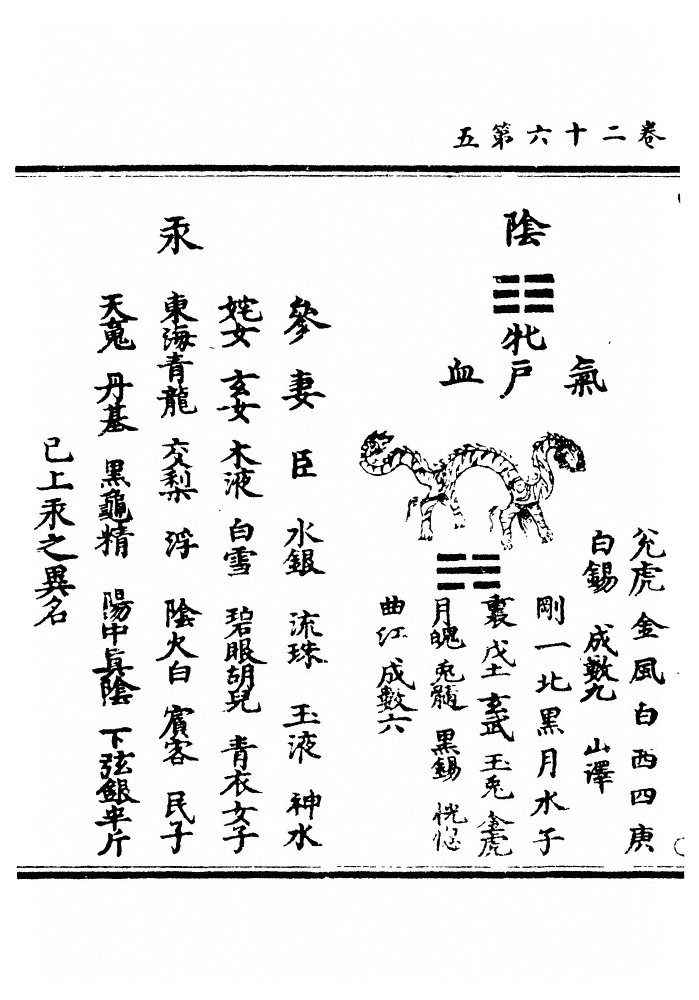 卷二十六第五
陰
牝
氣戶血
兊虎 金風白西四庚
白錫 成數九 山譯
剛一北黑月水子
裏 戊土 玄武 玉兎 金虎
月魄 兎髓 黑錫 恍惚
曲紅 成數六
汞
參 妻 臣 水銀 流珠 玉液 神水
姹女 玄女 木液 白雪 碧眼胡兒 青衣女子
東海青龍 交梨 浮 陰火白 賓客 民子
天䰟 丹基 黑龜精 陽中眞陰 下弦銀半斤
已上汞之異名